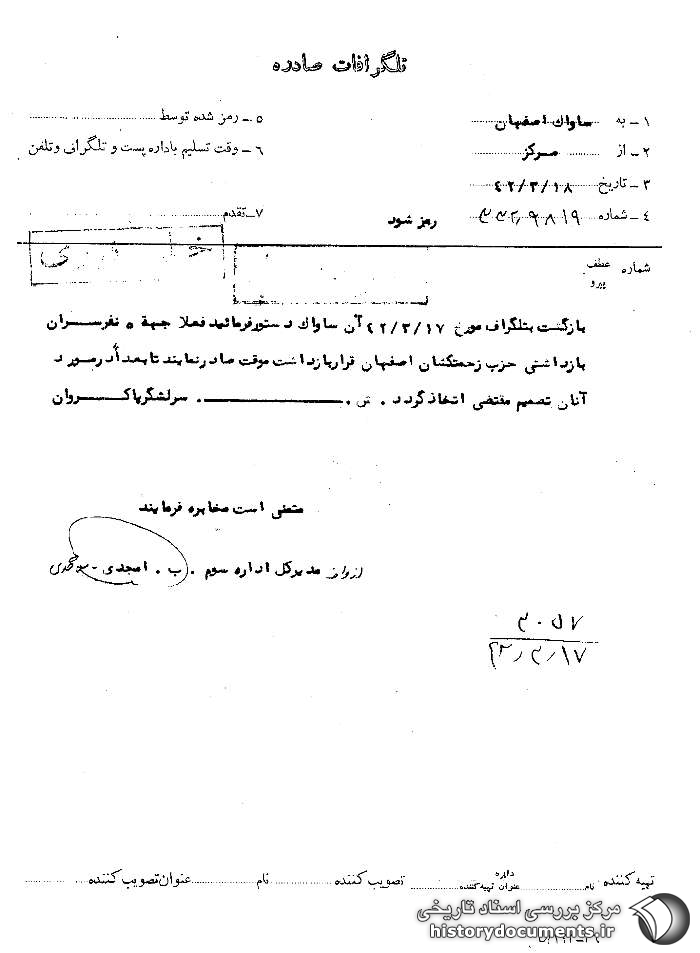 تلگرافات صادره
۱ – به ساواک اصفهان
۲ – از مرکز
۳ – تاریخ ۴۲/۳/۱۸
۴ – شماره
۵ – رمز شده توسط
۶ – وقت تسلیم باداره پست و تلگراف وتلفن
۷ – تقدم
رمز شود
شماره عطف
پیرو
بازگشت بتلگراف مورخ ۴۲/۳/۱۷ آن ساواک دستورفرمائید فعلا جهة ۵ نفرسران
بازداشتی حزب زحمتکشان اصفهان قراربازداشت موقت صادرنمایند تا بعداً درمورد
آنان تصمیم مقتضی اتخاذگردد . ــــــــ . سرلشگرپاکروان
متمنی است مخابره فرمایند
مدیرکل اداره سوم . ب . امجدی
۳۰۵۷
۴۲/۳/۱۷
تهیه کننده نام
دایره
عنوان تهیه کننده
تصویب کننده
نام
عنوان تصویب کننده
مرکز بررسی اسناد تاریخی
historydocuments.ir